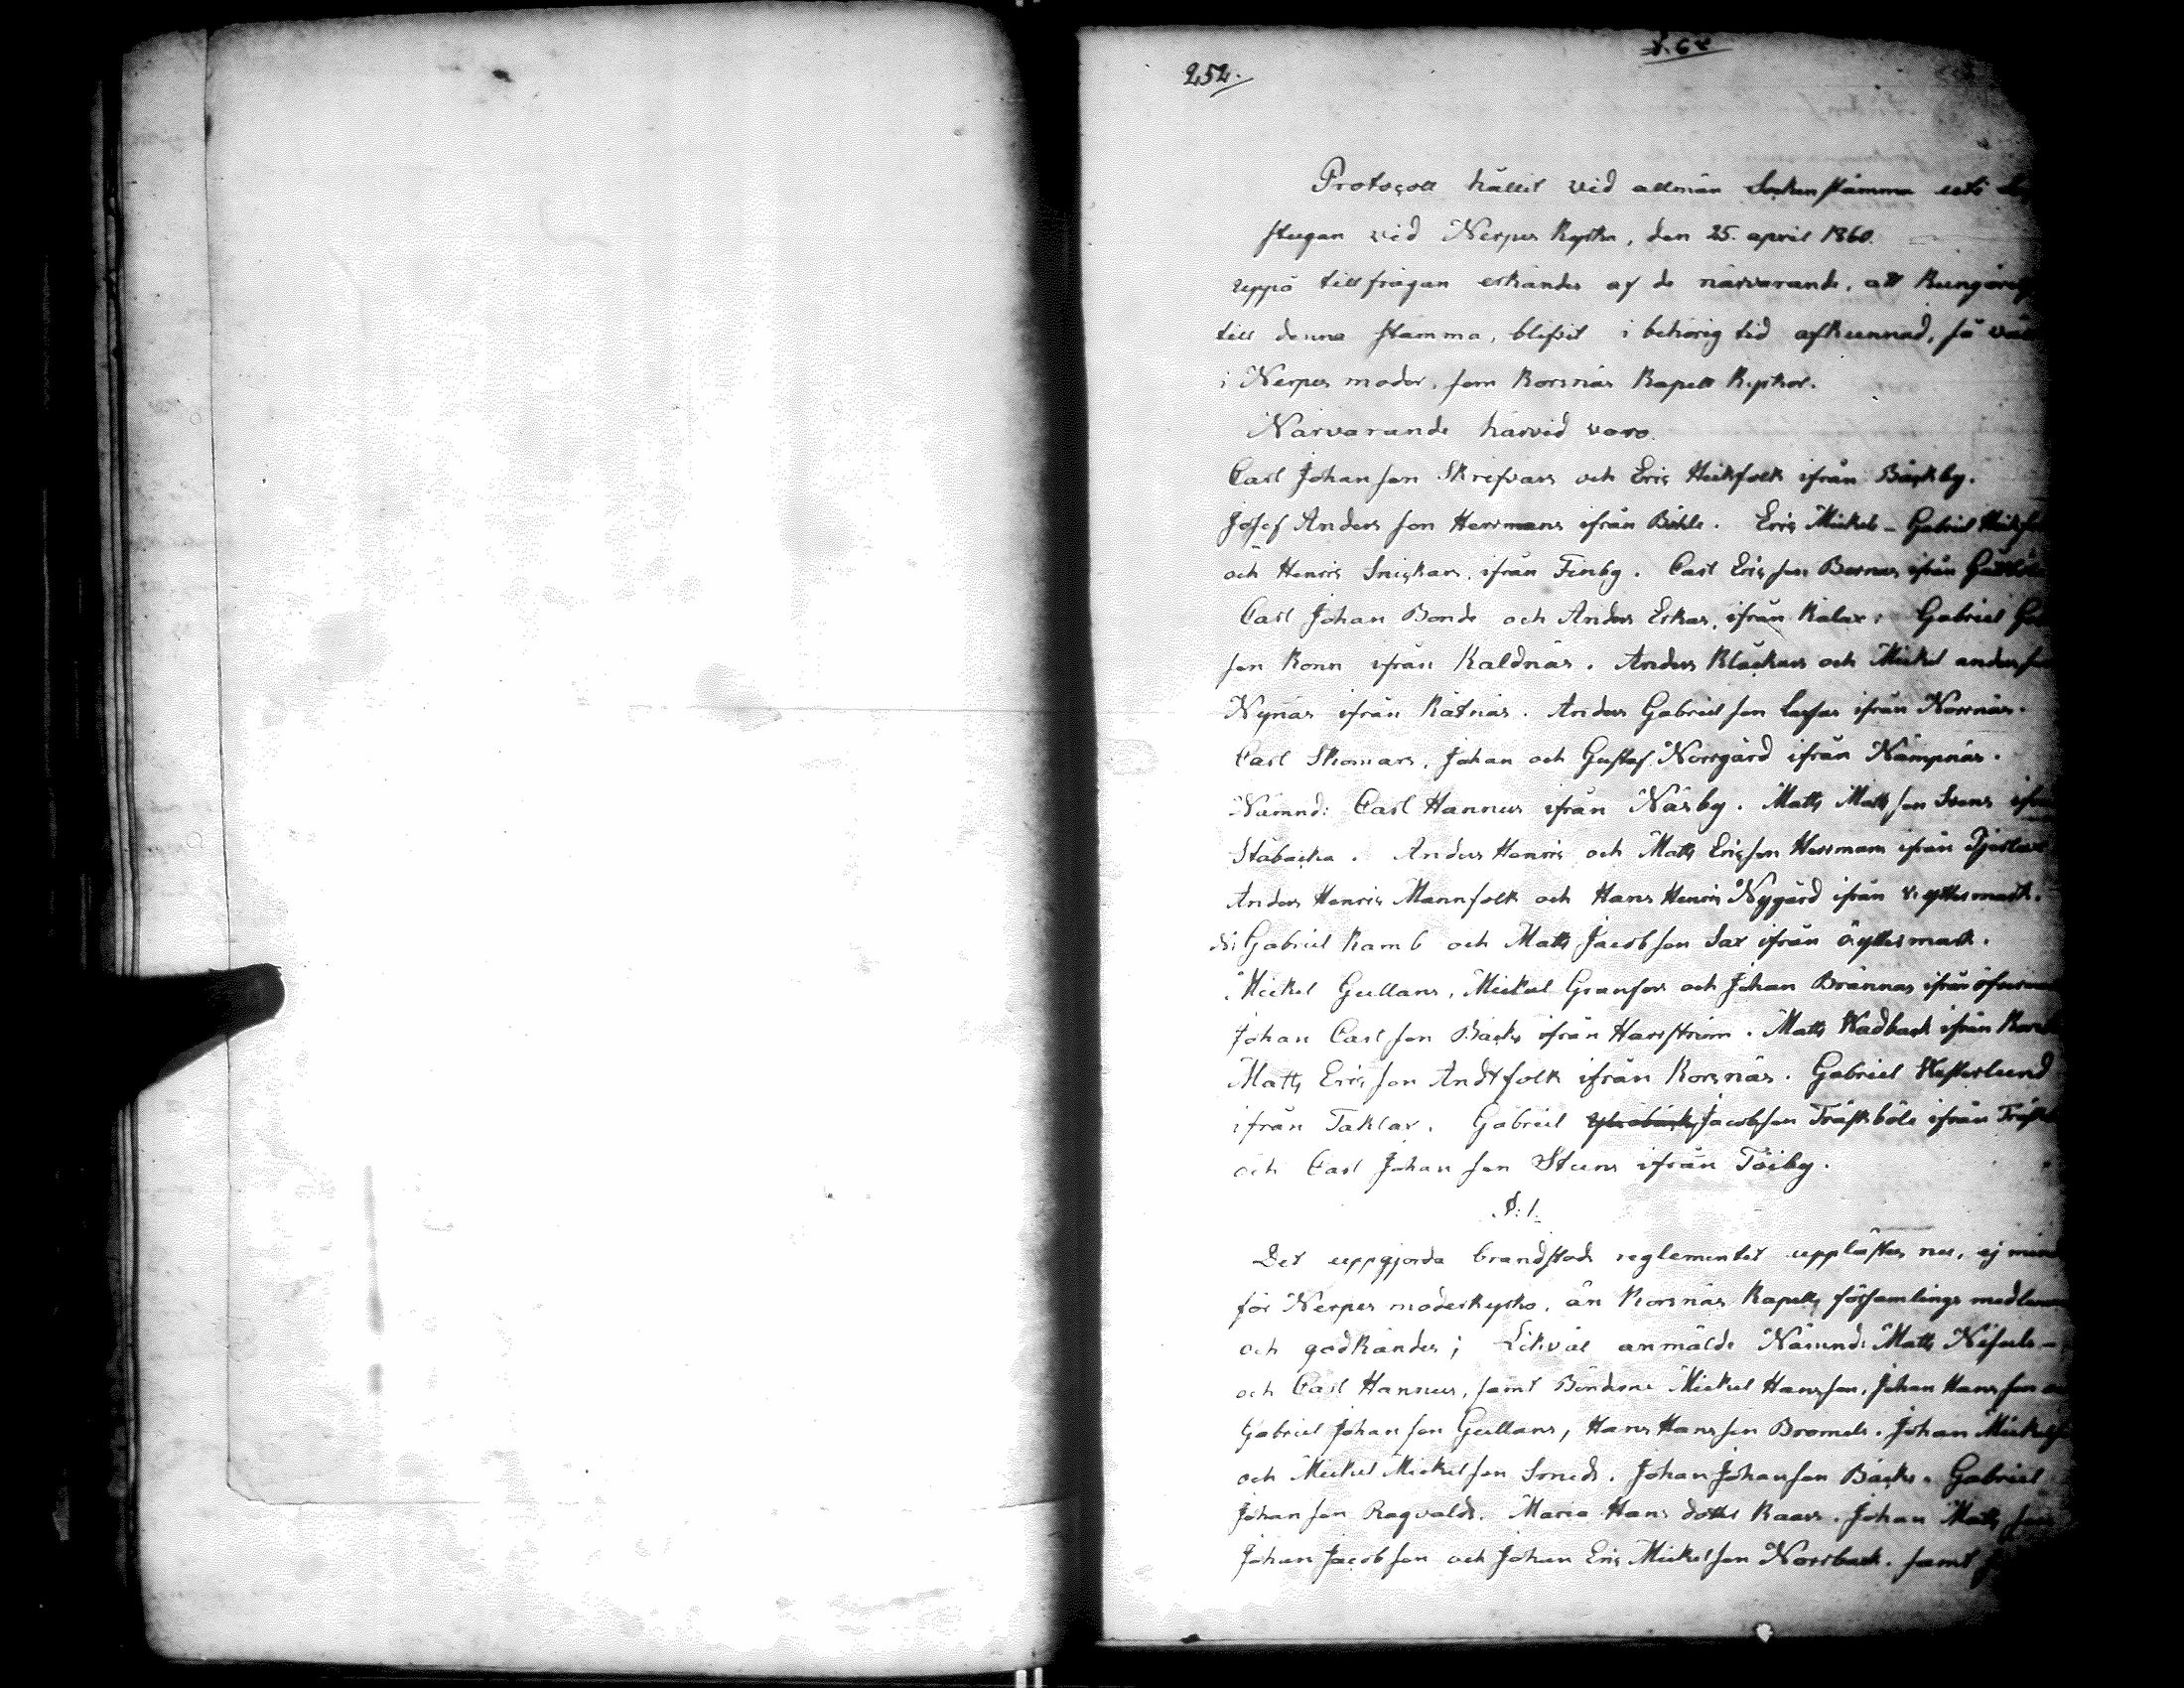 252.
Protocoll hållit vid allmän Sockenstämma uti
stugan vid Nerpes Kyrka, den 25. april 1860.
uppå tillfrågan erkändes af de närvarande, att Kungörelse
till denna stämma, blifvit i behörig tid afkunnad, så väl
i Nerpes moder, som Korsnäs Kapell Kyrkor.
Närvarande härvid voro.
Carl Johansson Skrifvars och Eric Heikfolk ifrån Bäckby.
Josef Andersson Hermans ifrån Böhle. Eric Mickels- Gabriel
och Henric Snickars, ifrån Finby. Carl Ericsson Bernas ifrån
Carl Johan Bonde och Anders Erkas, ifrån Kalax. Gabriel
son Ronn ifrån Kaldnäs. Anders Kläckars och Mickel andersson
Nynäs ifrån Rätnäs. Anders Gabrielsson ifrån Norrnäs.
Carl Skomars, Johan och Gustaf Norrgård ifrån Nämpnäs.
Nämnd: Carl Hannus ifrån Näsby. Matts Mattsson Svens ifrån
Ståbacka. Anders Henric och Matts Ericsson Hermans ifrån Tjerlax
Anders Henric Mannfolk och Hans Henric Nygård ifrån V. yttermark.
N: Gabriel Ramb och Matts Jacobsson Sax ifrån Ö. yttermark.
Mickel Gullans, Mickel Granfors och Johan Brännas ifrån öfvermark
Johan Carlsson Backs ifrån Harrström. Matts Wadback ifrån
Matts Ericsson Andtfolk ifrån Korsnäs. Gabriel Westerlund
ifrån Taklax. Gabriel Jacobsson Träskböle ifrån
och Carl Johansson Stuns ifrån Töiby.
§: 1.
Det uppgjorda brandstods reglementet upplästes nu, ej mindre
för Nerpes moderkyrko, än Korsnäs Kapells församlings medlemmar
och godkändes; Likväl anmälde Nämnd: Matts Nifuls-
och Carl Hannus, samt Bönderne Mickel Hansson, Johan Hansson
Gabriel Johansson Gullans, Hans Hansson Bromels. Johan
och Mickel Mickelsson Smeds. Johan Johansson Backs. Gabriel
Johansson Ragvalds. Maria Hans dotter Kaars. Johan Mattsson
Johan Jacobsson och Johan Eric Mickelsson Norrback. samt